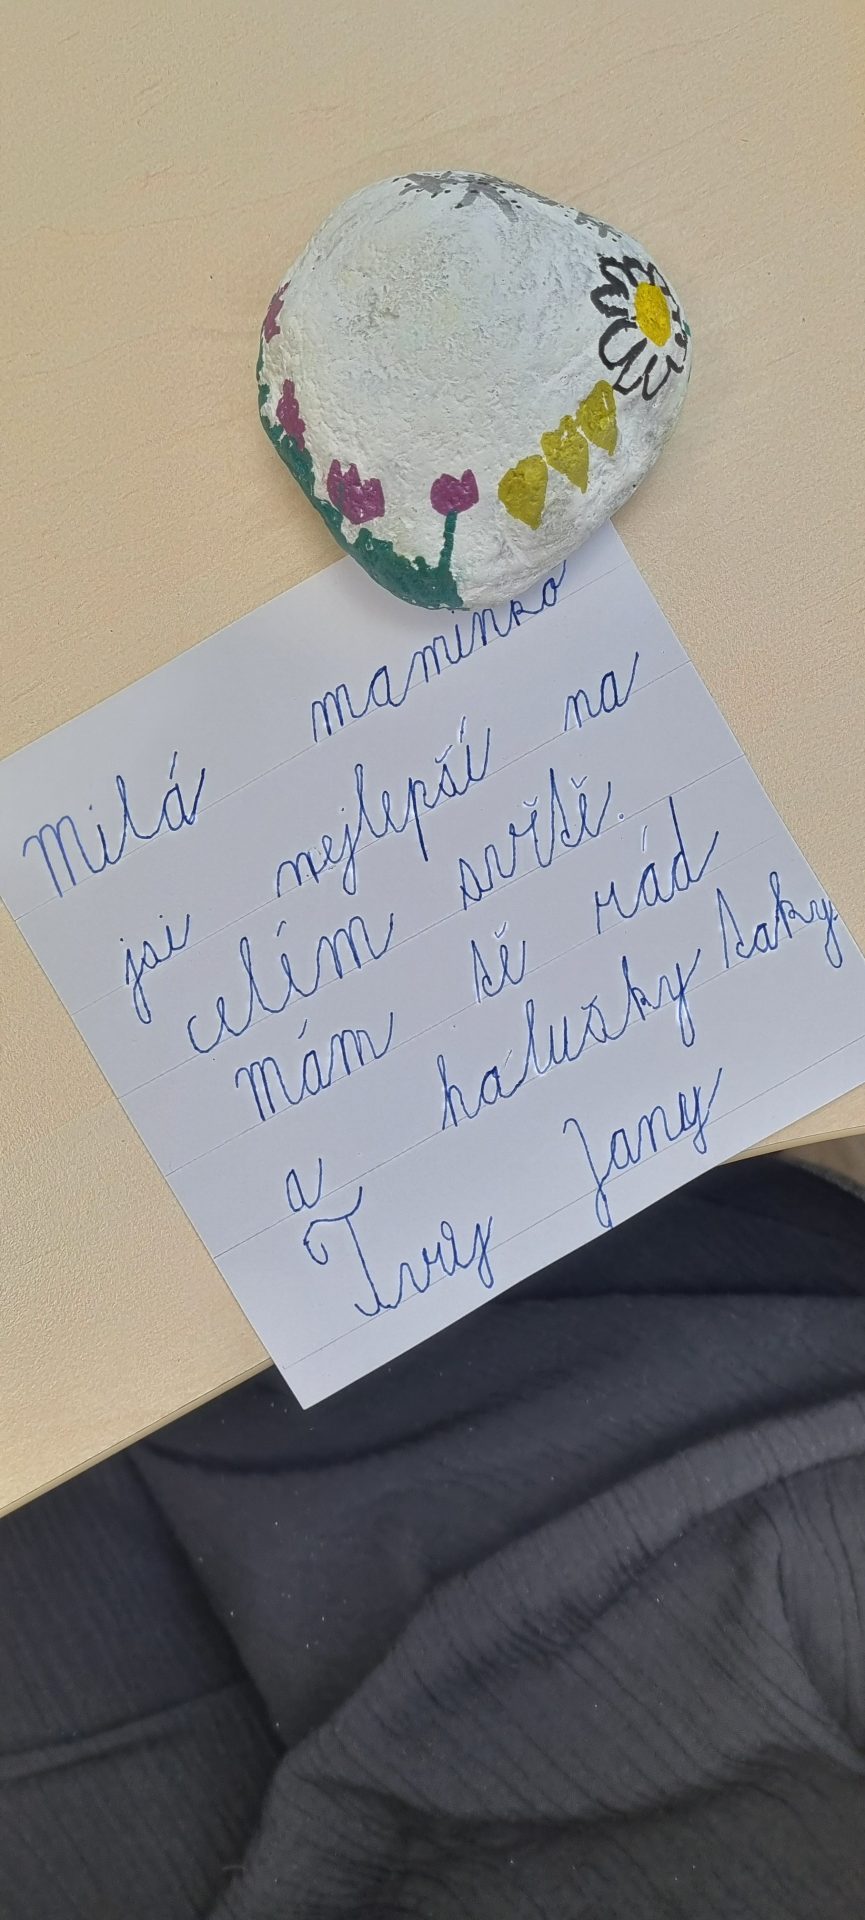 Milá maminko
jsi nejlepší na
celím světě.
mám tě rád
a halušky taky
Tvůj Jany